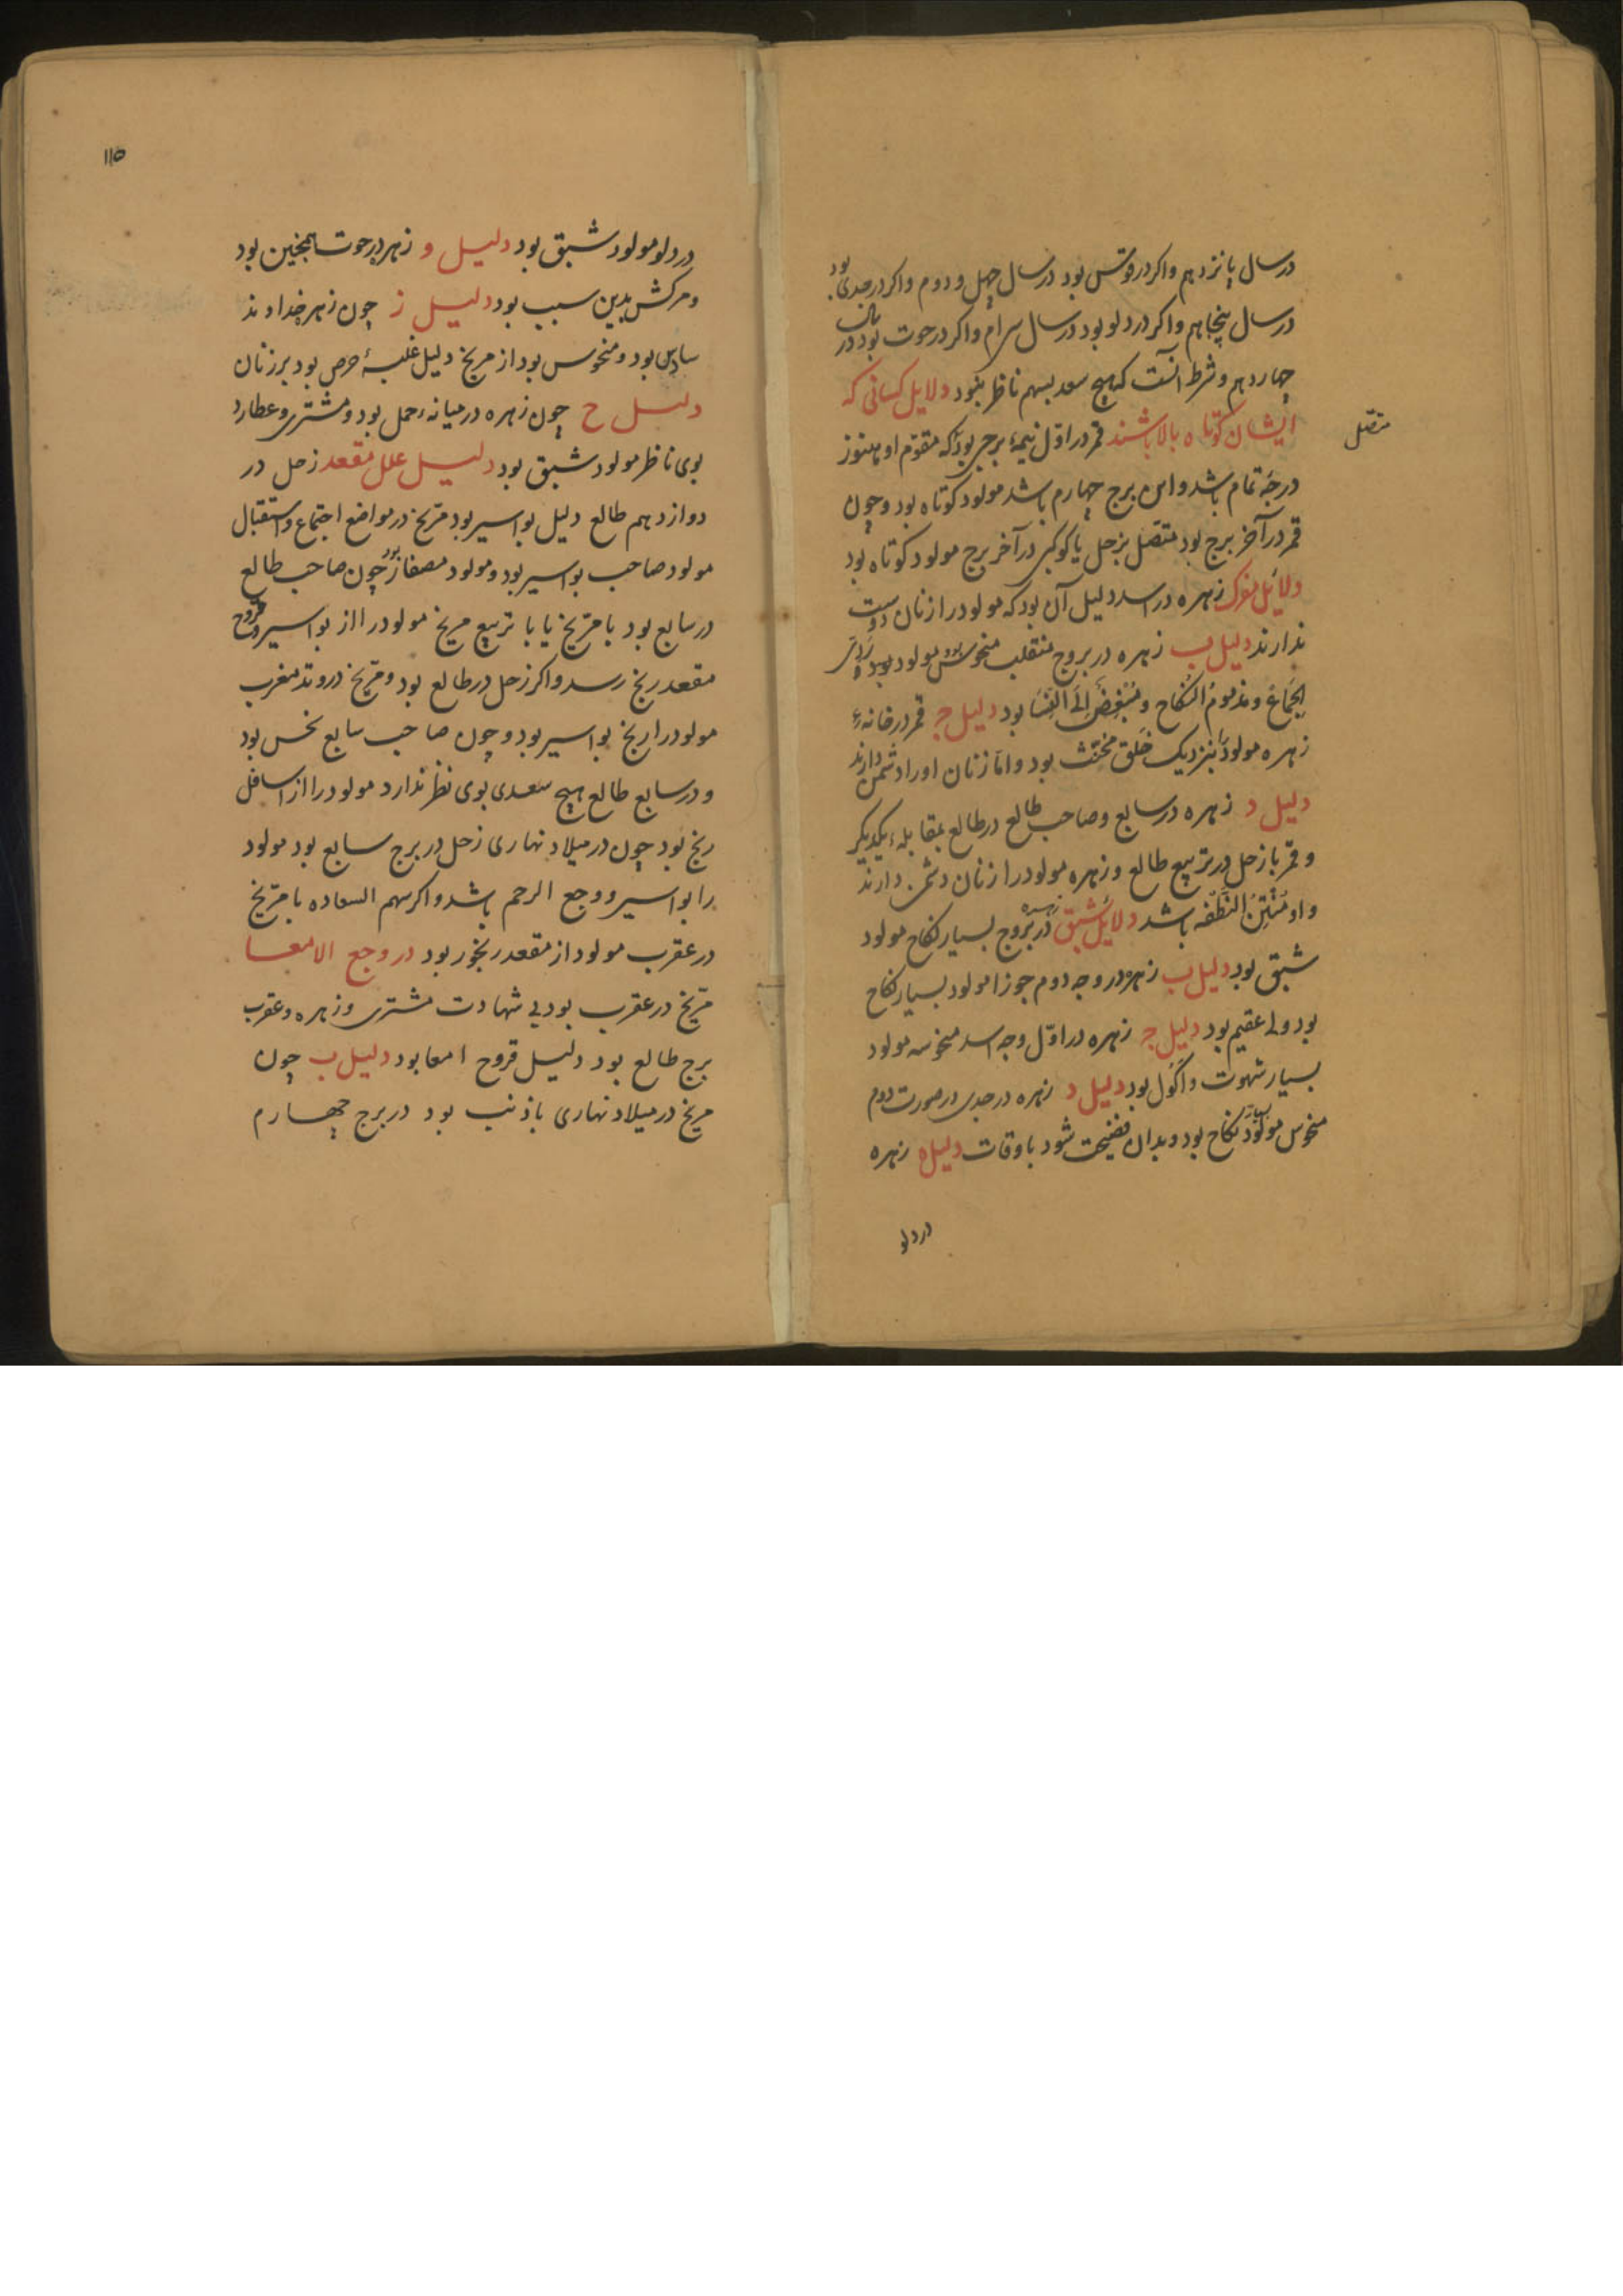 در سال پانزدهم واکر در قوس بود در سال چهل و دوم واکر در جدی بود
در سال پنجاهم واکر در دلو بود در سال سی‌ام واکر در حوت بود در سال
چهاردهم و شرط آنست که هیچ سعد بسهم ناظر نبود دلایل کسانی که
ایشان کوتاه بالا باشند قمر در اوّل نیمهٔ برجی بود که مقوّم او هنوز
متصل
درجهٔ تمام باشد و این برج چهارم باشد مولود کوتاه بود و چون
قمر در آخر برج بود متصّل بزحل یا کوکبی در آخر برج مولود کوتاه بود
دلایل مفرک زهره در اسد دلیل آن بود که مولود را زنان دوست
ندارند دلیل ب زهره در بروج منقلب منحوس بود مولود
الجَماعْ و مذمومُ النّکاح و مُبْغِضْ اِلَی النّسا بود دلیل ج قمر در خانهٔ
زهره مولود را بنزدیک خَلق مخنّث بود و امّا زنان او را دشمن دارند
دلیل د زهره در سابع و صاحب طالع در طالع بمقابلهٔ یکدیکر
و قمر با زحل در تربیع طالع و زهره مولود را زنان دشمن دارند
و او مُنْتِنُ النّطْفه باشد دلایل شبق زهره در بروج بسیار نکاح مولود
شبق بود دلیل ب زهره در وجه دوم جوزا مولود بسیار نکاح
بود ولی عقیم بود دلیل ج زهره در اوّل وجه اسد منحوسه مولود
بسیار شهوت و اکول بود دلیل د زهره در جدی در صورت دوم
منحوس مولود بسیار نکاح بود و بدان فضیحت شود باوقات دلیل ه زهره
در دلو
۱۱۵
در دلو مولود شبق بود دلیل و زهره در حوت همچنین بود
و مرکش بدین سبب بود دلیل ز چون زهره خداوند
سادس بود و منحوس بود از مریخ دلیل غلبهٔ حرص بود بر زنان
دلیل ح چون زهره در میانه حمل بود و مشتری و عطارد
بوی ناظر مولود شبق بود دلیل علل مقعد زحل در
دوازدهم طالع دلیل بواسیر بود مرّیخ در مواضع اجتماع و استقبال
مولود صاحب بواسیر بود و مولود مصفار بود چون صاحب طالع
در سابع بود با مرّیخ یا با تربیع مریخ مولود را از بواسیر و قروح
مقعد رنج رسد واکر زحل در طالع بود و مرّیخ در وتد مغرب
مولود را رنج بواسیر بود و چون صاحب سابع نحس بود
و در سابع طالع هیچ سعدی بوی نظر ندارد مولود را از اسافل
رنج بود چون در میلاد نهاری زحل در برج سابع بود مولود
را بواسیر و وجع الرحم باشد واکر سهم السعاده با مرّیخ
در عقرب مولود از مقعد رنجور بود در وجع الامعا
مرّیخ در عقرب بود بی شهادت مشتری و زهره و عقرب
برج طالع بود دلیل قروح امعا بود دلیل ب چون
مریخ در میلاد نهاری با ذنب بود در برج چهارم